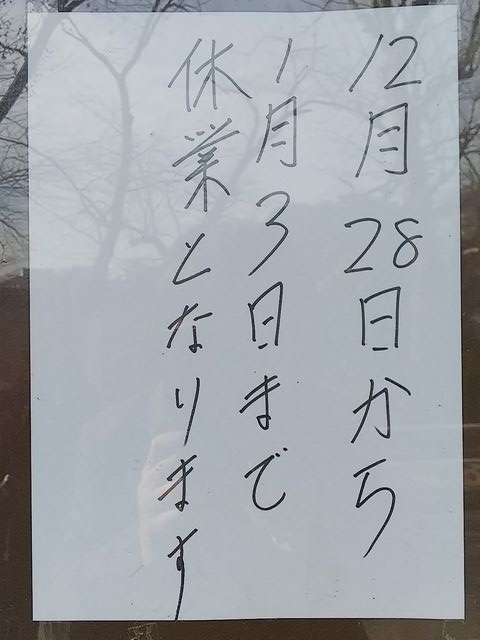 12月28日から
1月3日まで
休業となります